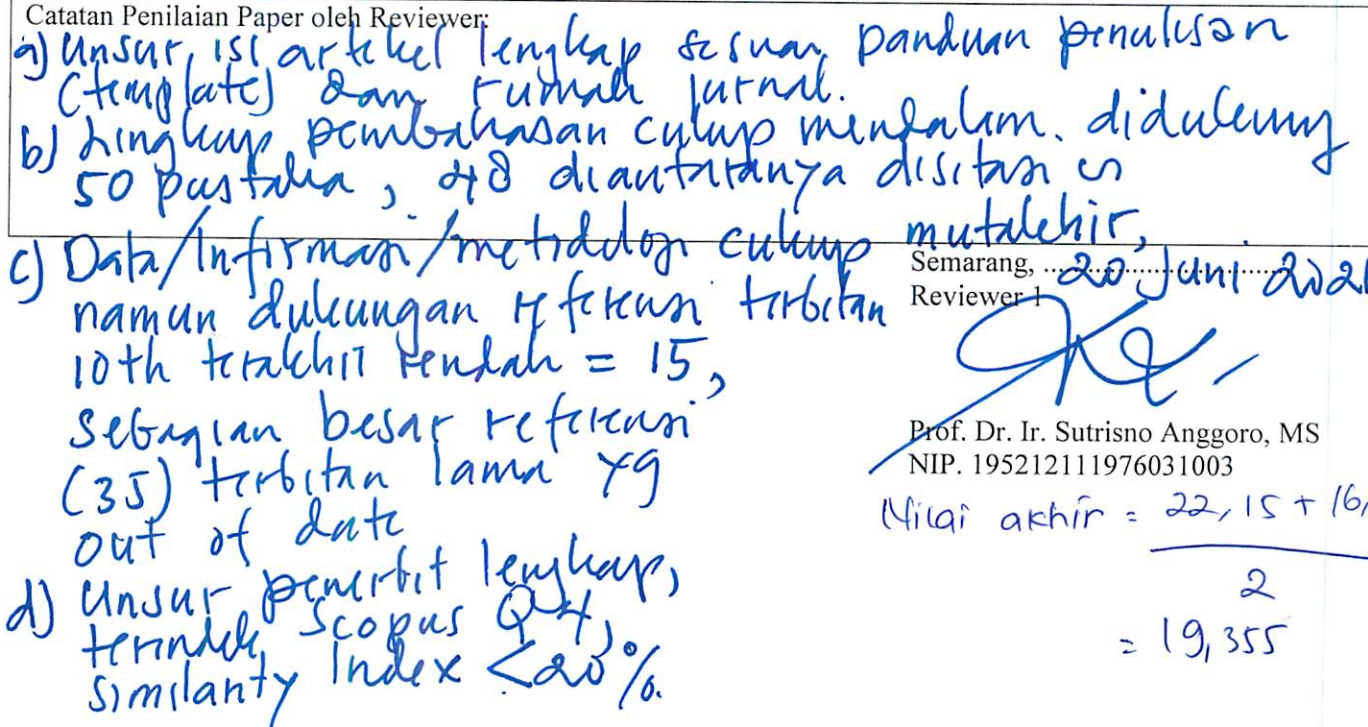 Catatan Penilaian Paper oleh Reviewer:
a) Unsur, isi artikel lengkap sesuai panduan penulisan
(template) dan rumah jurnal.
b) Lingkup pembahasan cukup mendalam. didukung
50 pustaka, 48 diantaranya disitasi
c) Data/Informasi/metodologi cukup mutakhir,
namun dukungan referensi terbitan
10th terakhir rendah = 15,
sebagian besar referensi
(35) terbitan lama yg
out of date
d) Unsur penerbit lengkap,
terindek Scopus Q4,
Similarity Index <20%.
Semarang, 20 Juni 202
Reviewer 1
Prof. Dr. Ir. Sutrisno Anggoro, MS
NIP. 195212111976031003
Nilai akhir = 22,15 + 16,
2
= 19,355